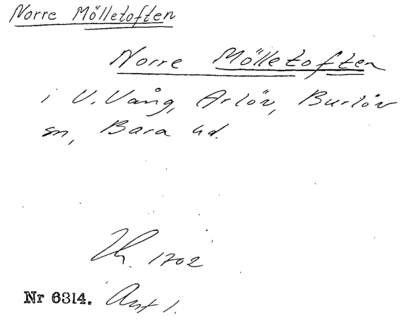 Norre Mölletoften
Norre Mölletoften
i V. Vång, Arlöv, Burlöv
sn, Bara hd.
Lh. 1702
Nr 6314. Akt 1.